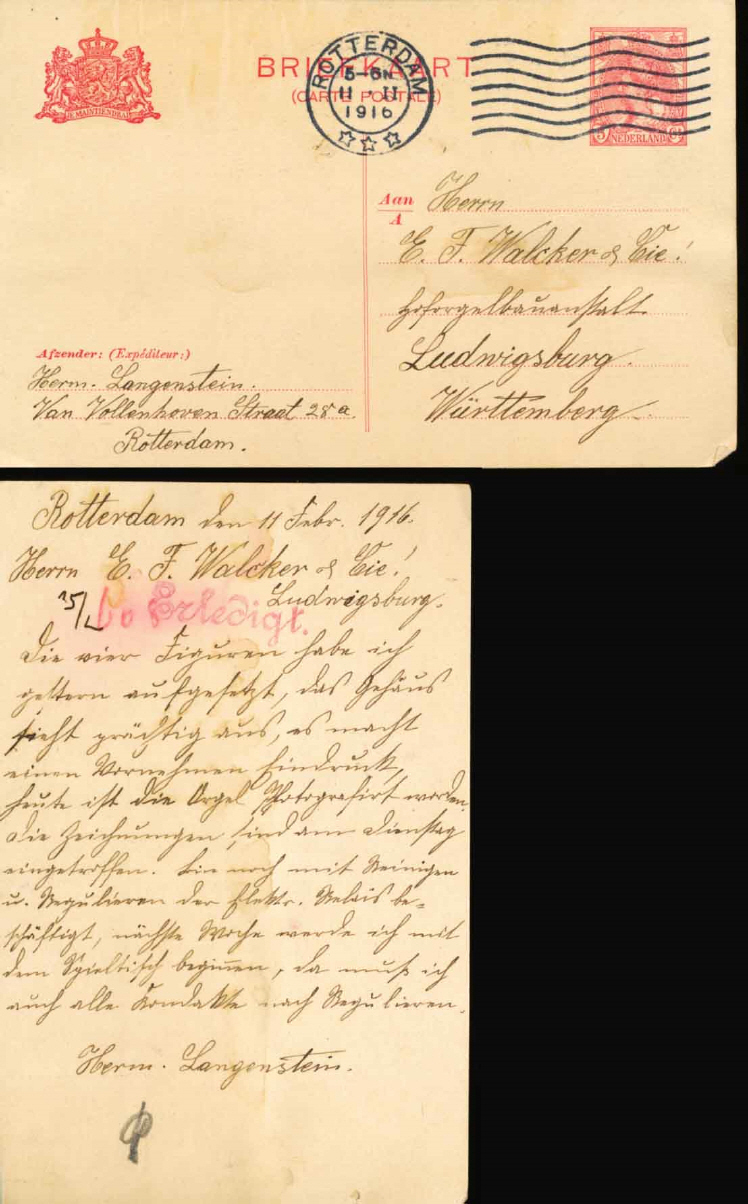 JE MAINTIENDRAI
BRIEFKAART
(CARTE POSTALE)
ROTTERDAM
5-6N
11 · II
1916
5 Ct
NEDERLAND
Aan Herrn
A
E. F. Walcker & Cie!
Hoforgelbauanstalt
Ludwigsburg.
Württemberg.
Afzender: (Expéditeur:)
Herm. Langenstein.
Van Vollenhoven Straat 28a.
Rotterdam.
Rotterdam den 11 Febr. 1916.
Herrn E. F. Walcker & Cie!
Ludwigsburg.
Erledigt.
Die vier Figuren habe ich
gestern aufgesetzt, das Gehäus
sieht prächtig aus, es macht
einen Vornehmen Eindruck,
heute ist die Orgel Photografirt worden.
Die Zeichnungen sind am Dienstag
eingetroffen. Bin noch mit Reinigen
u. Regulieren der Elektr. Relais be-
schäftigt, nächste Woche werde ich mit
dem Spieltisch beginnen, da muß ich
auch alle Kondakte nach Regulieren.
Herm. Langenstein.